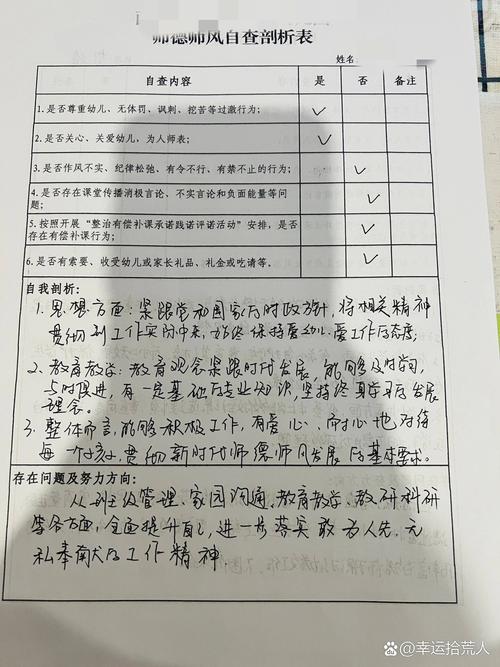 师德师风自查剖析表
姓名:
自查内容 是 否 备注
1.是否尊重幼儿、无体罚、讽刺、挖苦等过激行为; ✓
2.是否关心、关爱幼儿,为人师表; ✓
3.是否作风不实、纪律松弛、有令不行、有禁不止的行为; ✓
4.是否存在课堂传播消极言论、不实言论和负面能量等问
题; ✓
5.按照开展“整治有偿补课承诺践诺评诺活动”安排,是否
存在有偿补课行为; ✓
6.是否有索要、收受幼儿或家长礼品、礼金或吃请等。 ✓
自我剖析:
1. 思想方面:紧跟党和国家的时政方针,将相关精神
贯彻到工作实际中来,始终保持爱幼儿、爱工作的态度;
2、教育教学:教育观念紧跟时代发展,能够及时学习,
与时俱进,有一定基础的专业知识,坚持终身学习的发展
理念。
3、整体而言,能够积极工作,有爱心、耐心地对待
每一个孩子,贯彻新时代师德师风发展的基本要求。
存在问题及努力方向:
从班级管理、家园沟通、教育教学、教研科研
等各方面,全面提升自己,进一步落实敢为人先、无
私奉献的工作精神。
@幸运拾荒人